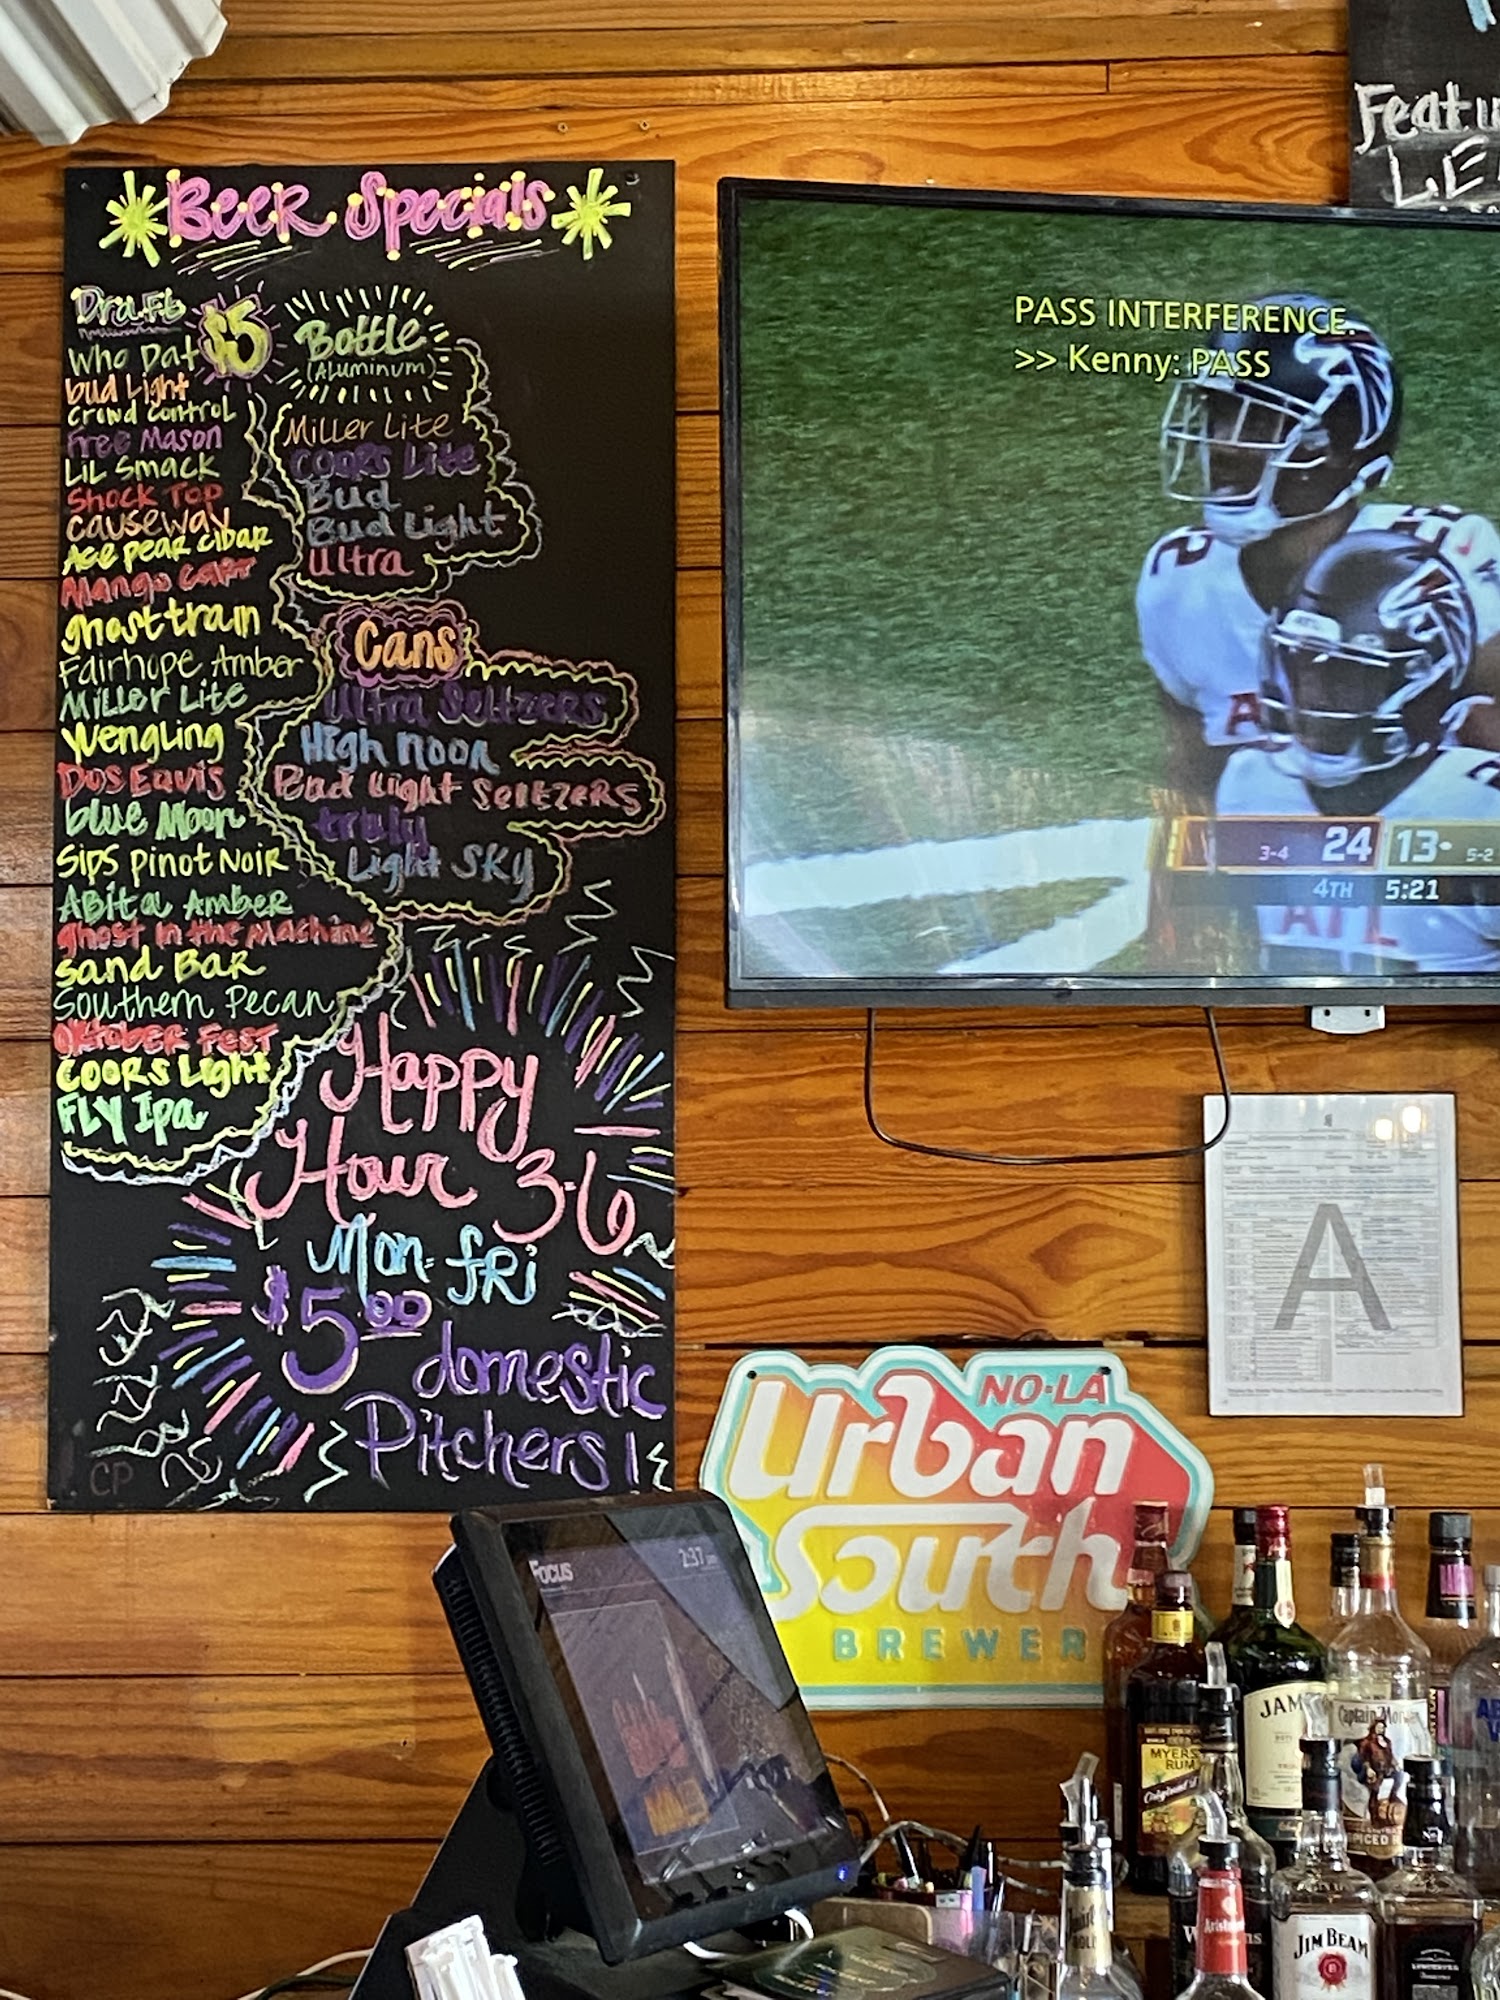 Beer Specials
Draft $5
Who Dat
bud Light
Crowd Control
Free Mason
LiL Smack
Shock Top
Causeway
Ace pear cidar
Mango Cart
ghost train
Fairhope Amber
Miller Lite
Yuengling
Dos Equis
blue Moon
Sips pinot Noir
Abita Amber
ghost in the Machine
Sand Bar
Southern Pecan
Oktober Fest
Coors Light
FLY Ipa
Bottle
(ALuminum)
Miller Lite
Coors Lite
Bud
Bud Light
Ultra
Cans
Ultra Seltzers
High noon
Bud Light Seltzers
truly
Light Sky
Happy
Hour 3-6
Mon-fRi
$5.00
domestic
Pitchers!
CP
Featu
LE
PASS INTERFERENCE.
>> Kenny: PASS
3-4 24 13 5-2
4TH 5:21
ATL
A
NO·LA
Urban
South
BREWER
Focus 2:37
MYERS
RUM
JAM
Captain Morgan
JIM BEAM